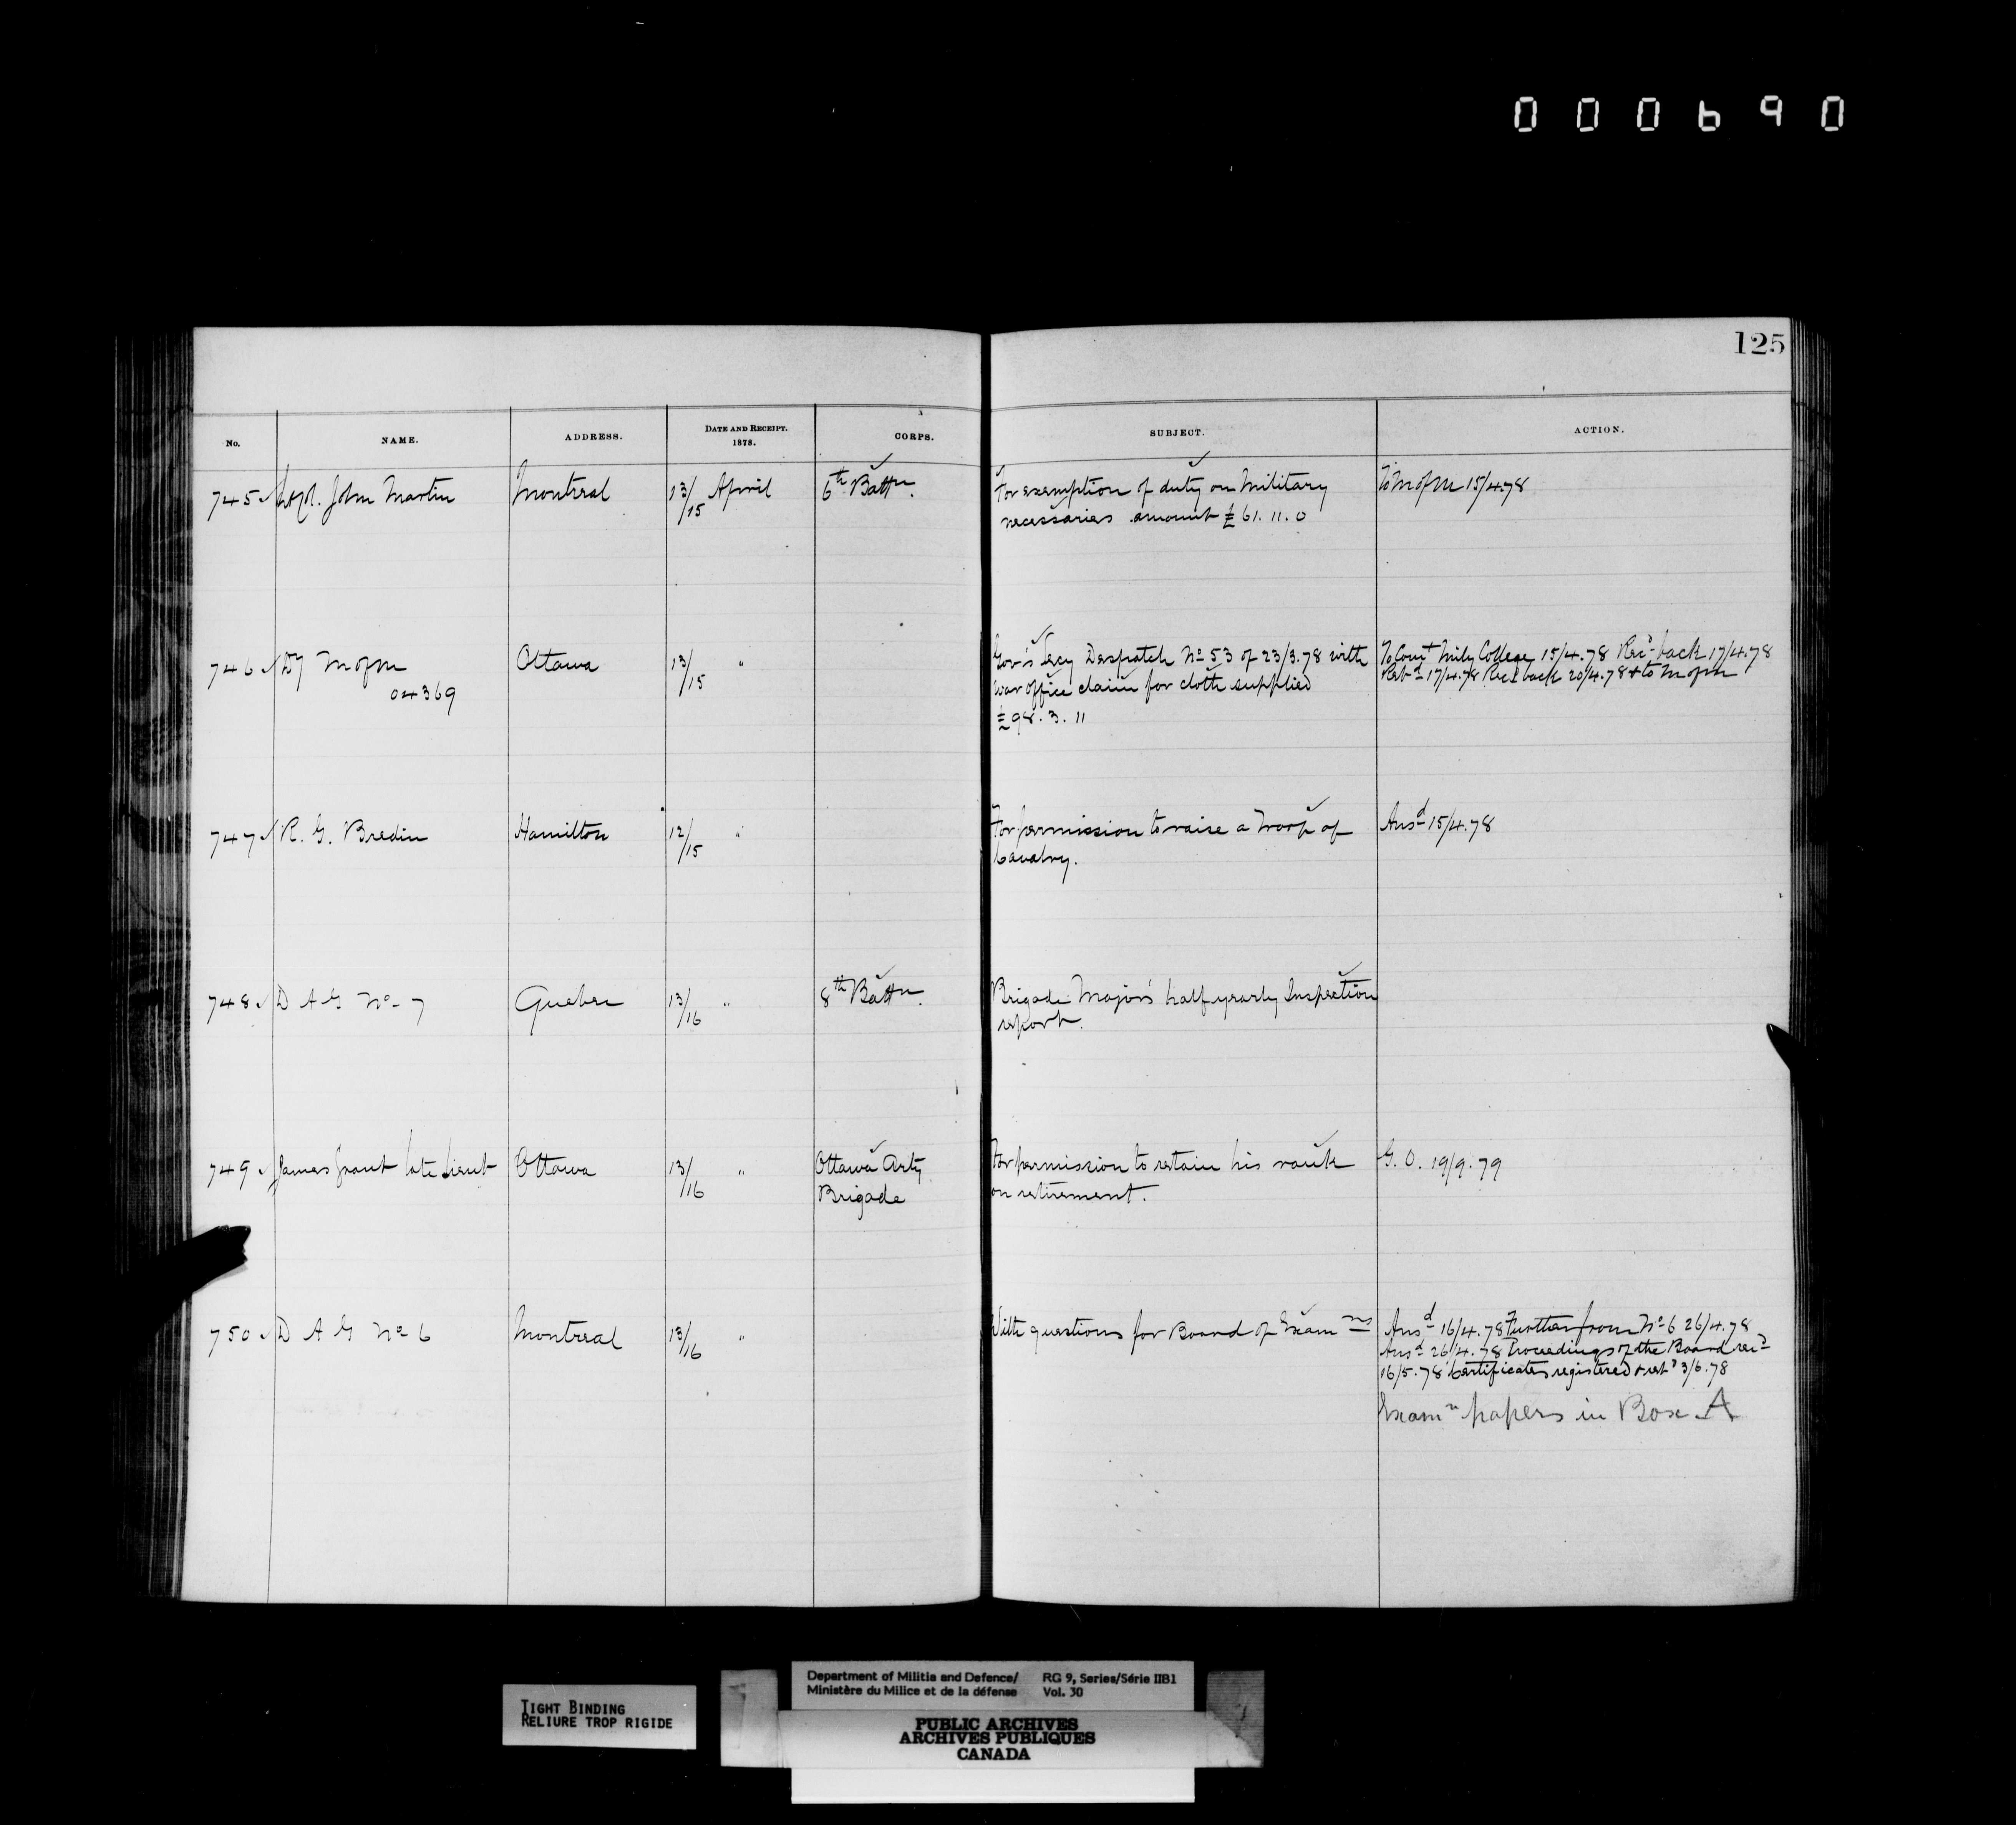 000690
125
No. NAME. ADDRESS. DATE AND RECEIPT. 1878. CORPS. SUBJECT. ACTION.
745 John Martin Montreal 13/15 April 6th Battn. For exemption of duty on Military To M of M 15/4.78
necessaries amount £61.11.0
746 Dy M of M Ottawa 13/15 " Gov's Secy Despatch No 53 of 23/3.78 with To Comt Mily College 15/4.78 Recd back 17/4.78
04369 War office claim for cloth supplied Retd 17/4.78 Recd back 20/4.78 & to M of M
£98.3.11
747 R. G. Bredin Hamilton 12/15 " For permission to raise a Troop of Ansd 15/4.78
Cavalry.
748 D A G No 7 Quebec 13/16 " 8th Battn. Brigade Major's half yearly Inspection
report.
749 James Grant late Lieut Ottawa 13/16 " Ottawa Arty For permission to retain his rank G. O. 19/9.79
Brigade on retirement.
750 D A G No 6 Montreal 13/16 " With questions for Board of Examns Ansd 16/4.78 Further from No 6 26/4.78
Ansd 26/4.78 Proceedings of the Board recd
16/5.78 Certificates registered & retd 3/6.78
Examn papers in Box A
TIGHT BINDING
RELIURE TROP RIGIDE
Department of Militia and Defence/ RG 9, Series/Série IIB1
Ministère du Milice et de la défense Vol. 30
PUBLIC ARCHIVES
ARCHIVES PUBLIQUES
CANADA